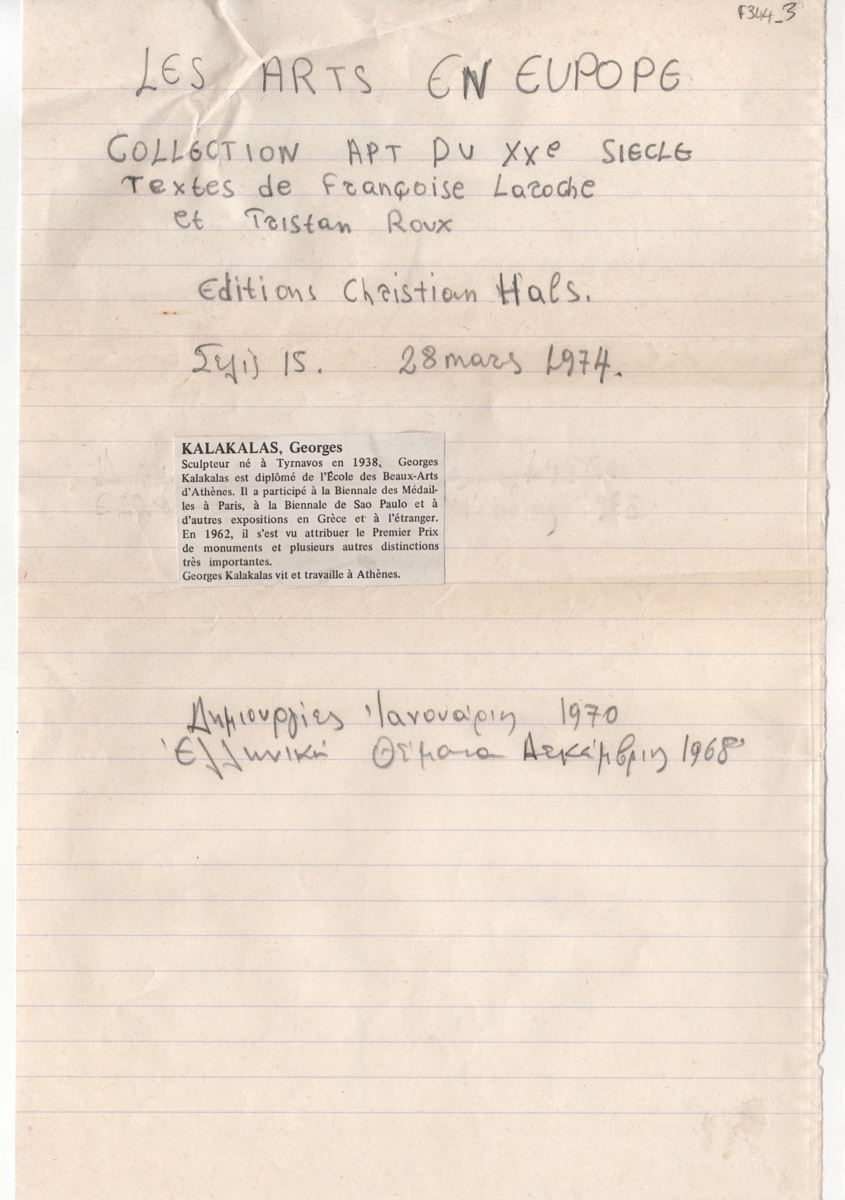 F344_3
LES ARTS EN EUPOPE
COLLECTION APT DU XXe SIECLE
Textes de Françoise Laroche
et Tristan Roux
Editions Christian Hals.
Σελίς 15. 28 mars 1974.
KALAKALAS, Georges
Sculpteur né à Tyrnavos en 1938, Georges
Kalakalas est diplômé de l'École des Beaux-Arts
d'Athènes. Il a participé à la Biennale des Médail-
les à Paris, à la Biennale de Sao Paulo et à
d'autres expositions en Grèce et à l'étranger.
En 1962, il s'est vu attribuer le Premier Prix
de monuments et plusieurs autres distinctions
très importantes.
Georges Kalakalas vit et travaille à Athènes.
Δημιουργίες Ἰανουάρης 1970
Ἑλληνικά Θέματα Δεκέμβρης 1968